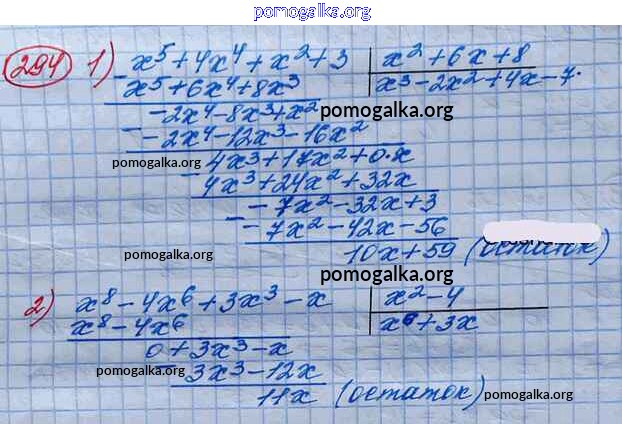 pomogalka.org
294 1) x⁵ + 4x⁴ + x² + 3 | x² + 6x + 8
x⁵ + 6x⁴ + 8x³ x³ - 2x² + 4x - 7.
- 2x⁴ - 8x³ + x² pomogalka.org
- 2x⁴ - 12x³ - 16x²
pomogalka.org 4x³ + 17x² + 0·x
4x³ + 24x² + 32x pomogalka.org
- 7x² - 32x + 3
- 7x² - 42x - 56
pomogalka.org 10x + 59 (остаток)
pomogalka.org
2) x⁸ - 4x⁶ + 3x³ - x | x² - 4
x⁸ - 4x⁶ x⁶ + 3x
0 + 3x³ - x
pomogalka.org 3x³ - 12x
11x (остаток) pomogalka.org